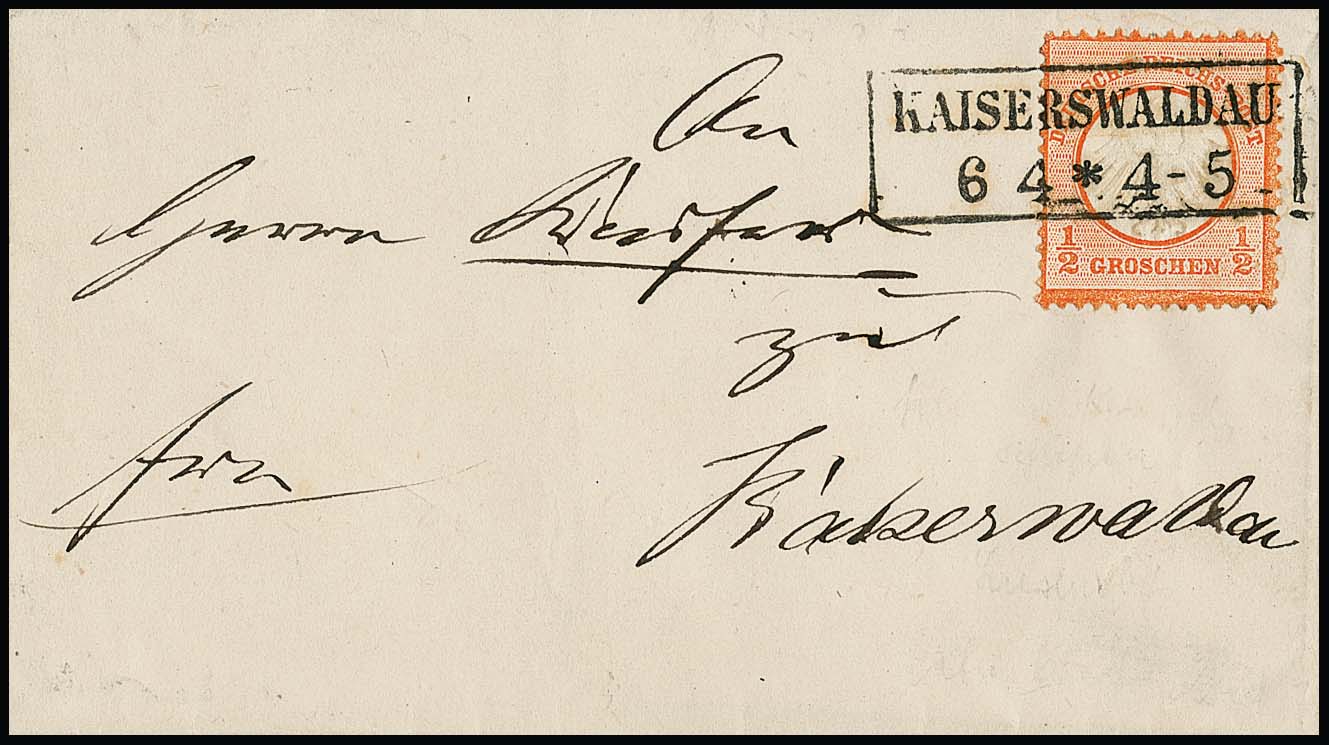 DEUTSCHE REICHS-POST
KAISERSWALDAU
6 4 * 4-5
1/2 GROSCHEN 1/2
An
Herrn
zu
frei
Kaiserwaldau